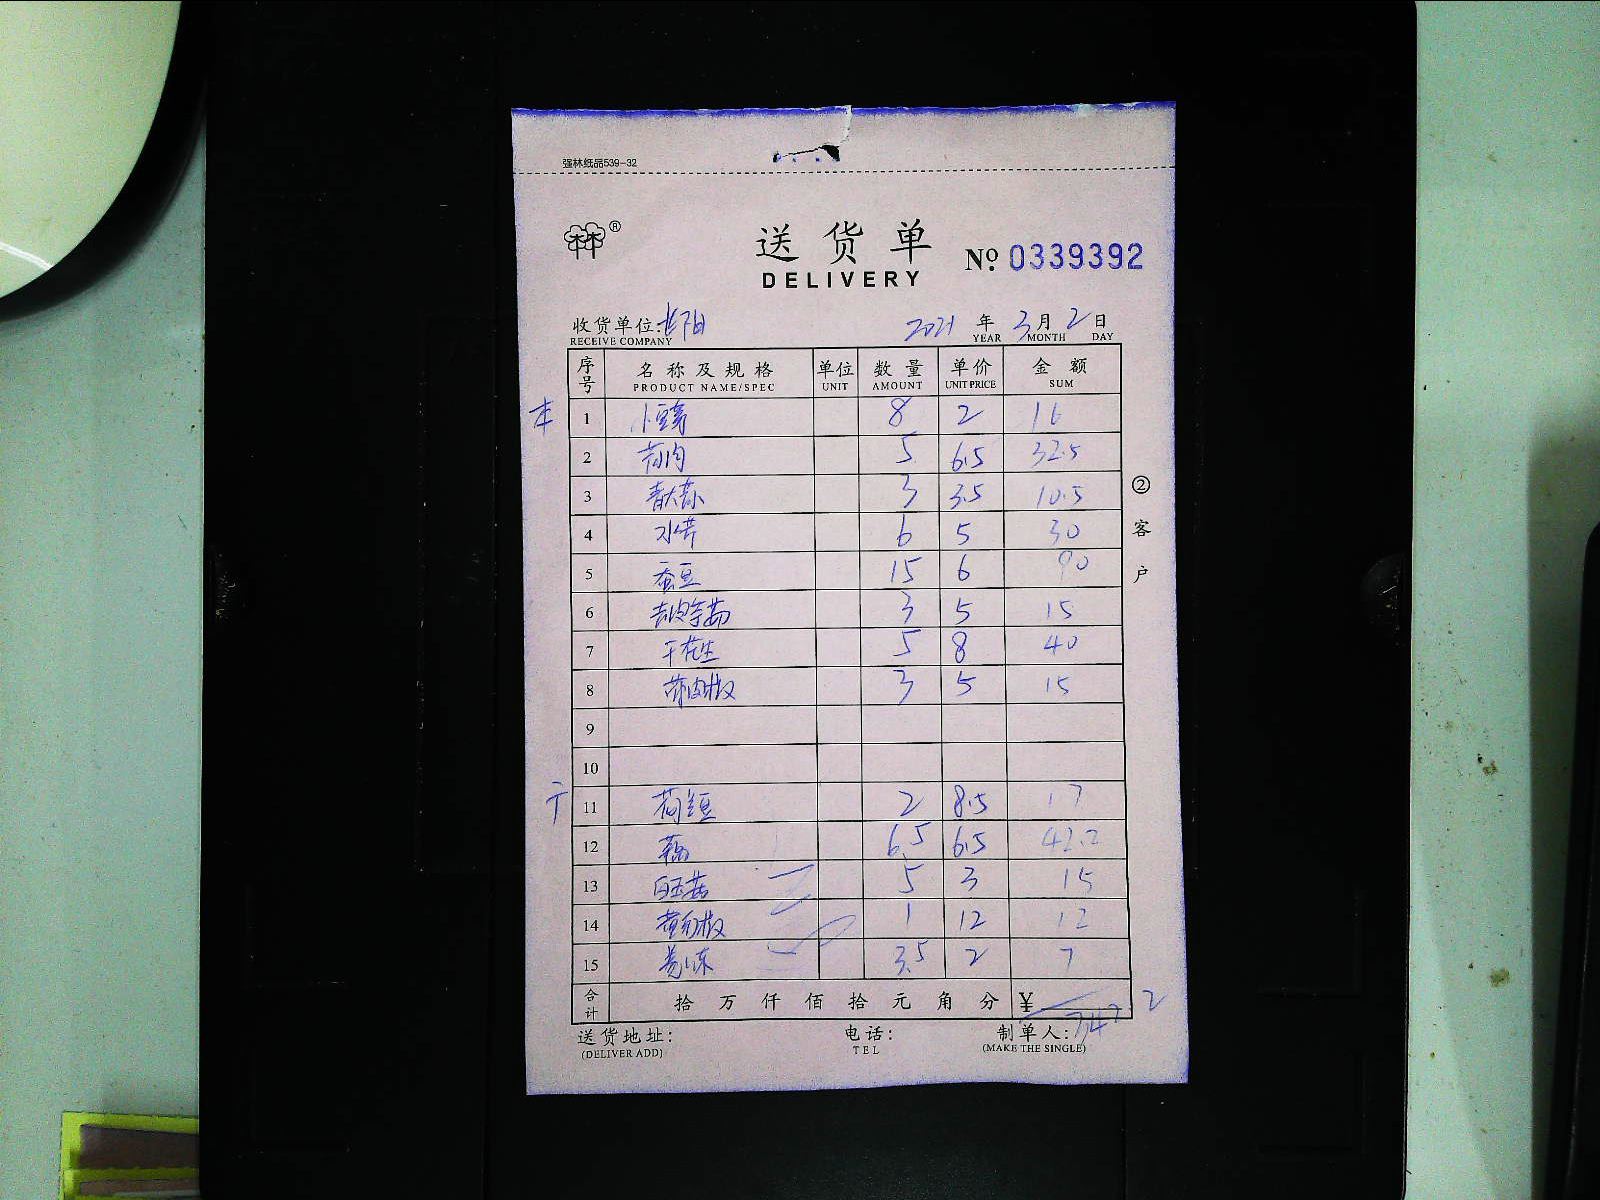 强林纸品539-32
林林®
送货单
DELIVERY
№ 0339392
收货单位:长阳 2021年3月2日
RECEIVE COMPANY YEAR MONTH DAY
序号 名称及规格 单位 数量 单价 金额
PRODUCT NAME/SPEC UNIT AMOUNT UNIT PRICE SUM
本 1 小豆芽 8 2 16
2 5 6.5 32.5
3 3 3.5 10.5
4 水笋 6 5 30
5 蚕豆 15 6 90
6 3 5 15
7 干花生 5 8 40
8 3 5 15
9
10
11 2 8.5 17
12 藕 6.5 6.5 42.2
13 白玉菇 5 3 15
14 1 12 12
15 3.5 2 7
合计 拾万仟佰拾元角分 ¥
送货地址: 电话: 制单人:
(DELIVER ADD) TEL (MAKE THE SINGLE)
②客户